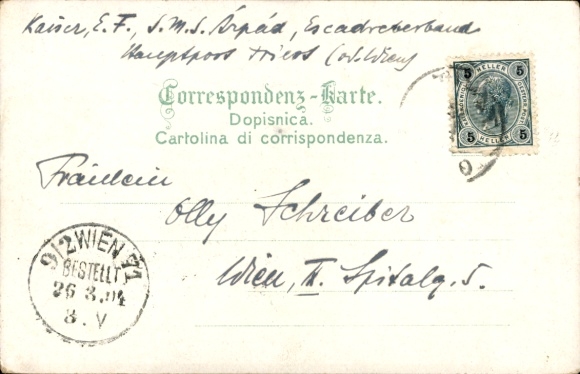 Kaiser, E. F., S.M.S. Árpád, Escadreverband
Hauptpost Triest (od. Wien)
Correspondenz-Karte.
Dopisnica.
Cartolina di corrispondenza.
5 HELLER 5
5 HELLER 5
Fräulein
Olly Schreiber
Wien, II. Spitalg. 5.
9/2 WIEN 71
BESTELLT
26 3. 04
8. V